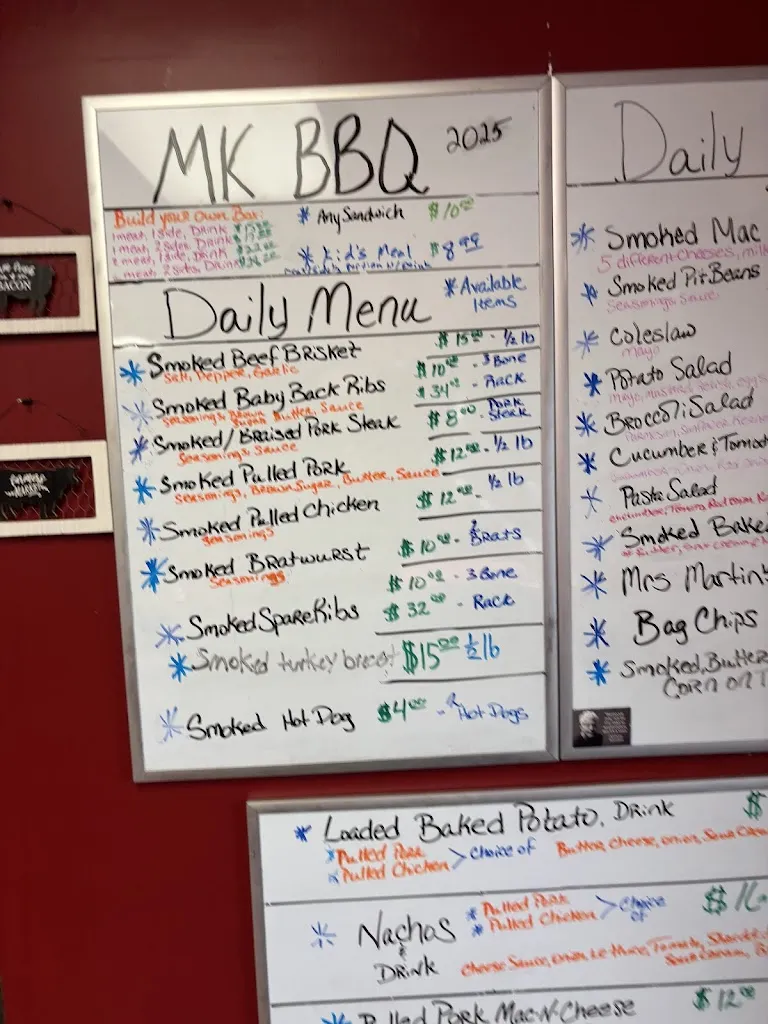 MK BBQ 2025
Build your Own Box:
1 meat, 1 side, Drink
1 meat, 2 sides, Drink
2 meat, 1 side, Drink
2 meat, 2 sides, Drink
* Any Sandwich $10.00
* Kid's Meal $8.99
Daily Menu
* Available Items
* Smoked Beef Brisket $15.00 - 1/2 lb
Salt, Pepper, Garlic
* Smoked Baby Back Ribs $10.00 - 3 Bone
$34.00 - Rack
Seasonings, Brown Sugar, Butter, Sauce
* Smoked/Braised Pork Steak $8.00 - Pork Steak
Seasonings, Sauce
* Smoked Pulled Pork $12.00 - 1/2 lb
Seasonings, Brown Sugar, Butter, Sauce
* Smoked Pulled Chicken $12.00 - 1/2 lb
Seasonings
* Smoked Bratwurst $10.00 - 2 Brats
Seasonings
* Smoked Spare Ribs $10.00 - 3 Bone
$32.00 - Rack
* Smoked turkey breast $15.00 1/2 lb
* Smoked Hot Dog $4.00 - 2 Hot Dogs
Daily
* Smoked Mac
5 different cheeses, milk
* Smoked Pit Beans
Seasonings, Sauce
* Coleslaw
Mayo
* Potato Salad
* Broccoli Salad
* Cucumber & Tomato
* Pasta Salad
* Smoked Bake
* Mrs Martin's
* Bag Chips
* Smoked, Butter
Corn on T
BACON
* Loaded Baked Potato, Drink $
* Pulled Pork
* Pulled Chicken > Choice of
Butter, cheese, onion, Sour Cream
* Nachos & Drink
* Pulled Pork
* Pulled Chicken > Choice of
$16.
Cheese Sauce, onion, Lettuce, Tomato,
Sour Cream,
* Pulled Pork Mac-N-Cheese $12.00